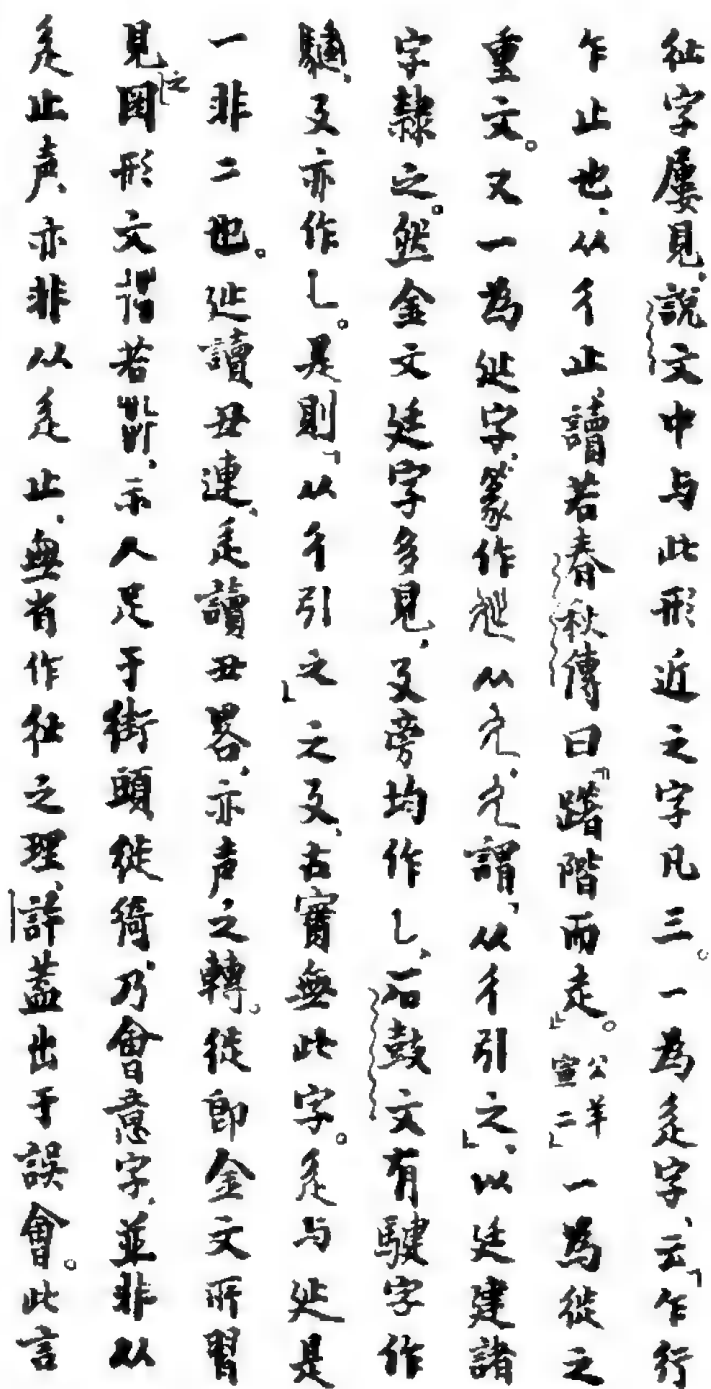 字屢見,說文中与此形近之字凡三。一為辵字、云「乍行
乍止也,从彳止,讀若春秋傳曰『躇階而走』。公羊宣二」一為徙之
重文。又一為㢟字,篆作从廴,廴謂「从彳引之」,以廷建諸
字隸之。然金文廷字多見,廴旁均作乚,石鼓文有騝字作
,廴亦作乚。是則「从彳引之」之廴,古實無此字。辵与㢟是
一非二也。㢟讀丑連,辵讀丑畧,亦声之轉。徙即金文所習
見之圖形文若,示人足于街頭徙徛,乃會意字,並非从
辵止声,亦非从辵止,無省作之理,許蓋出于誤會。此言